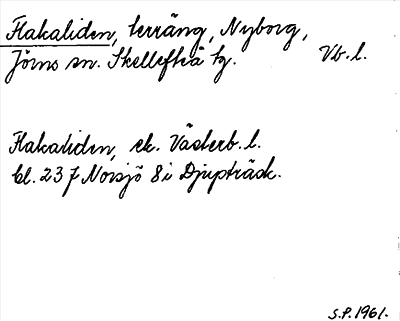 Flakaliden, terräng, Nyborg,
Jörns sn. Skellefteå tg. Vb. l.
Flakaliden, ek. Västerb. l.
bl. 23 J Norsjö 8 i Djupträsk.
S.P. 1961.